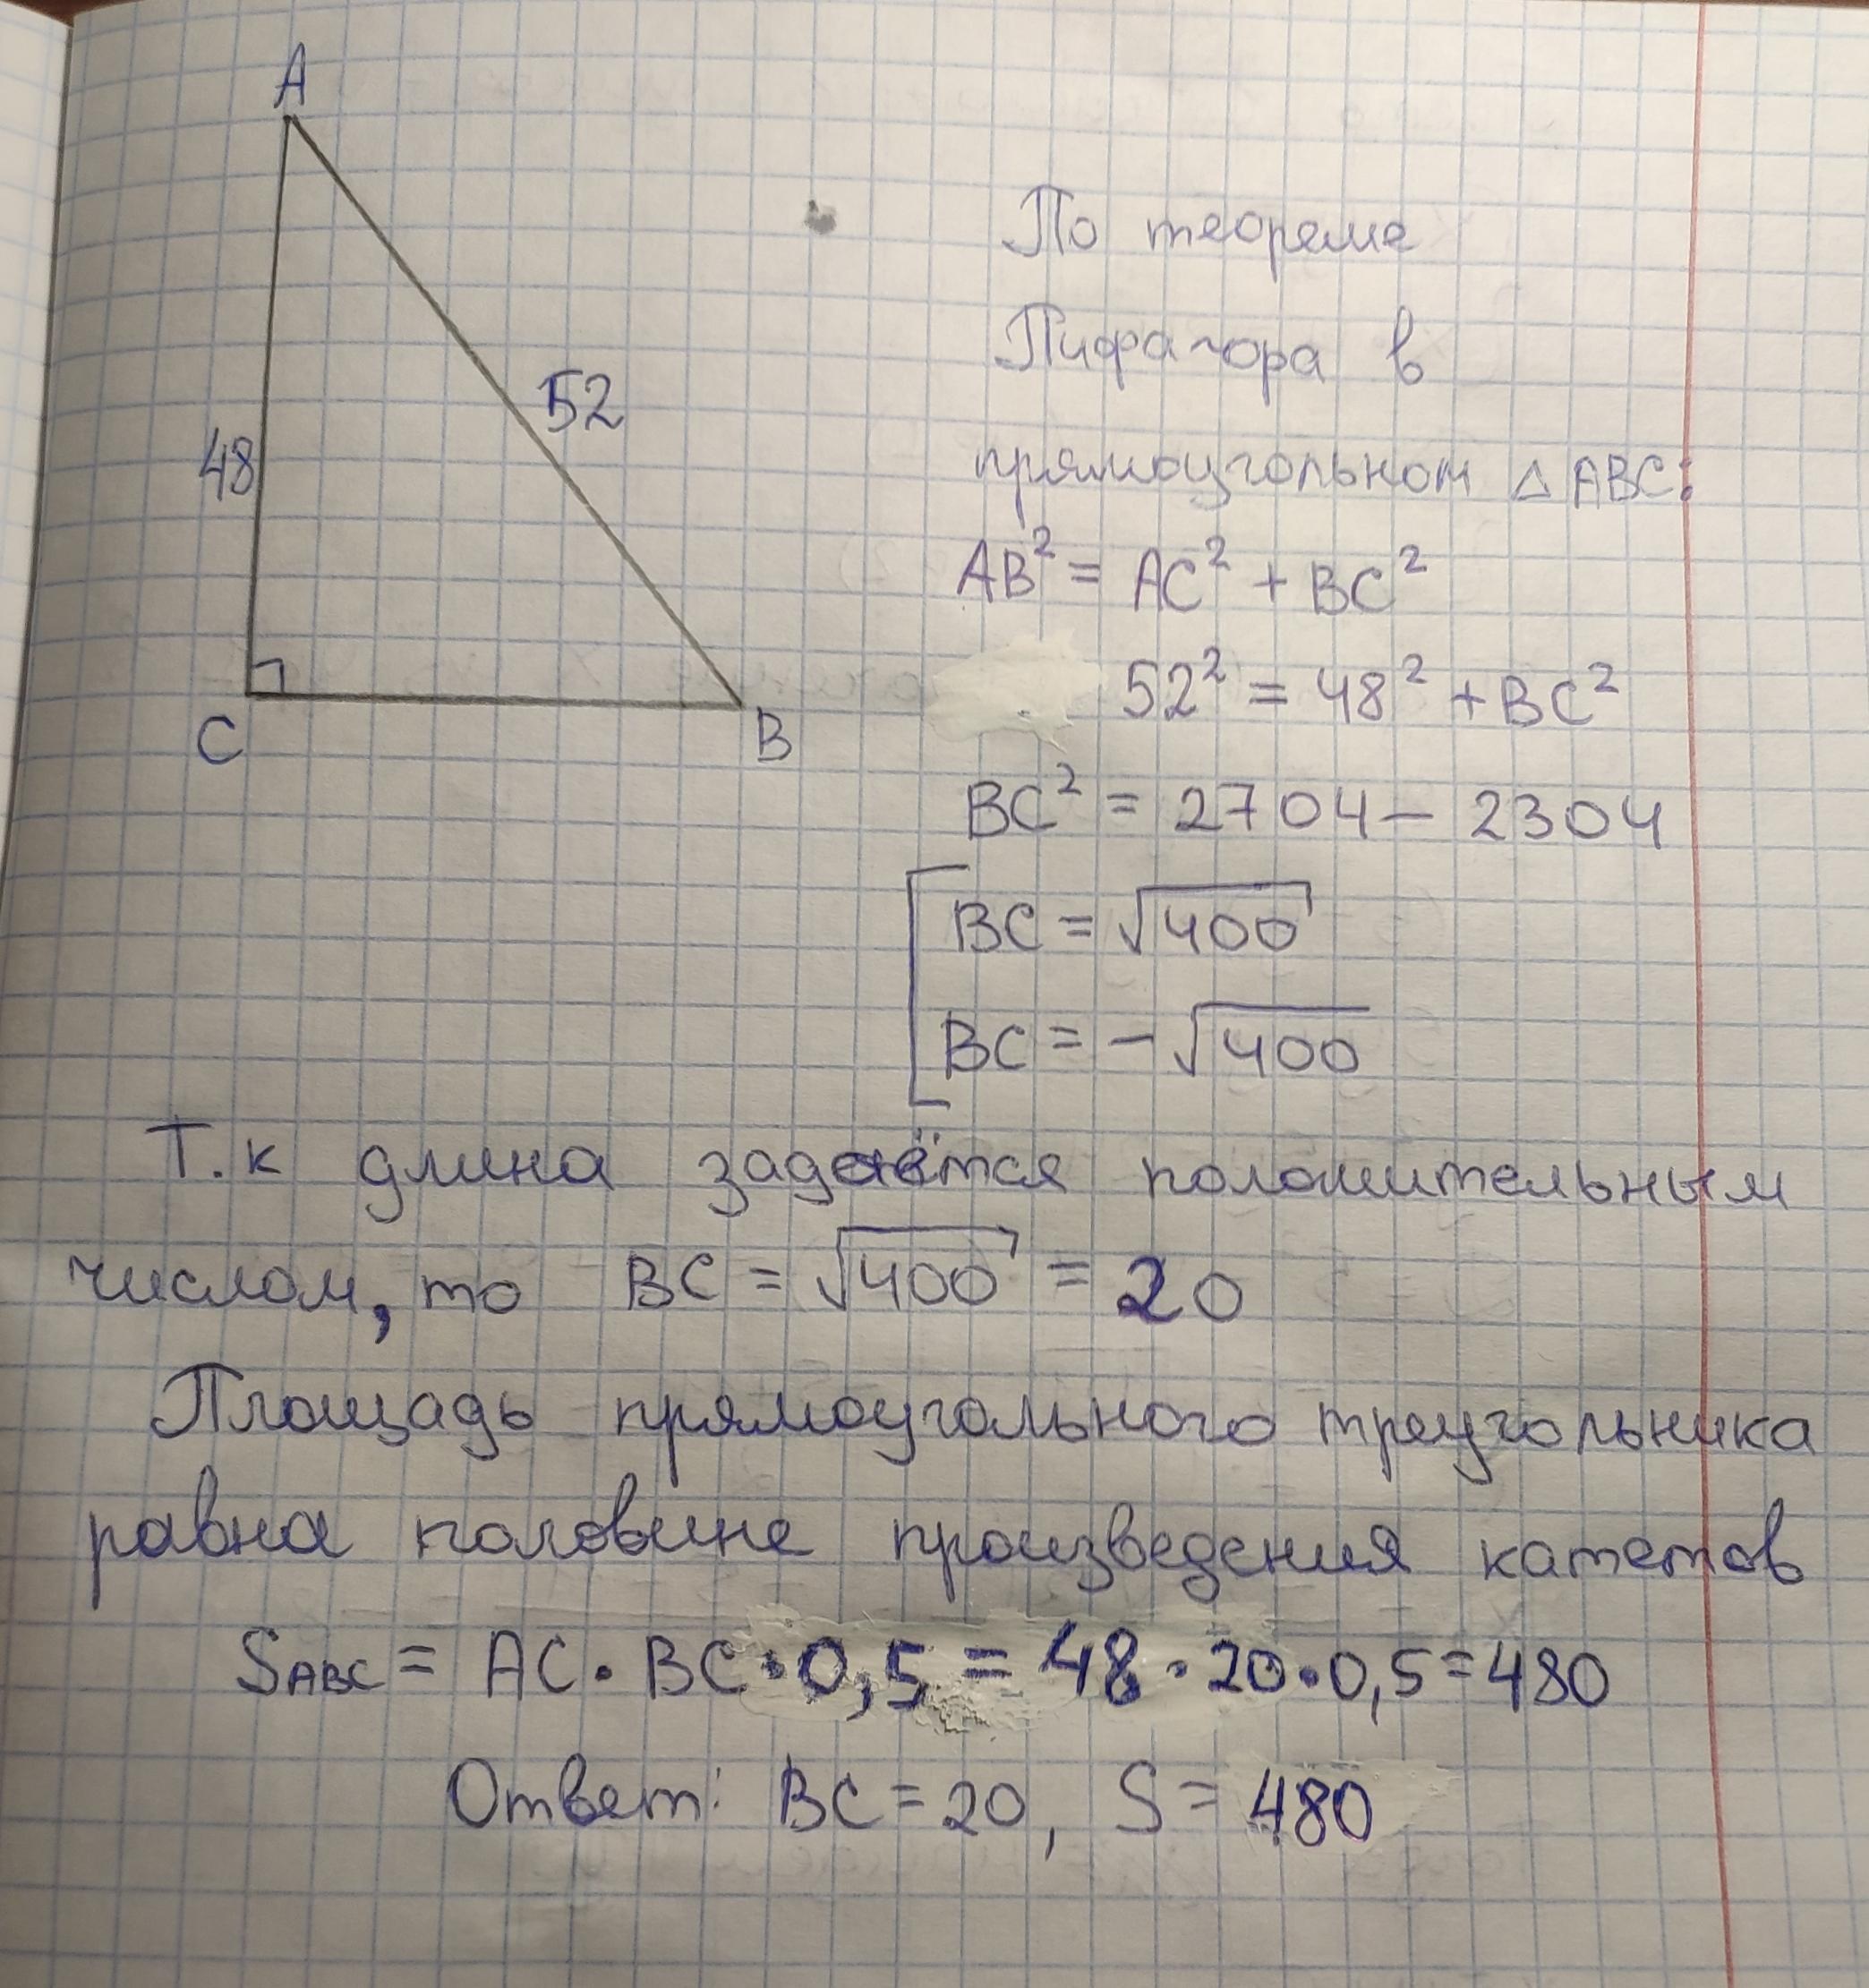 A
48
52
C
B
По теореме
Пифагора в
прямоугольном △ ABC:
AB² = AC² + BC²
52² = 48² + BC²
BC² = 2704 – 2304
BC = √400
BC = – √400
Т.к длина задаётся положительным
числом, то BC = √400 = 20
Площадь прямоугольного треугольника
равна половине произведения катетов
SABC = AC · BC · 0,5 = 48 · 20 · 0,5 = 480
Ответ: BC = 20, S = 480